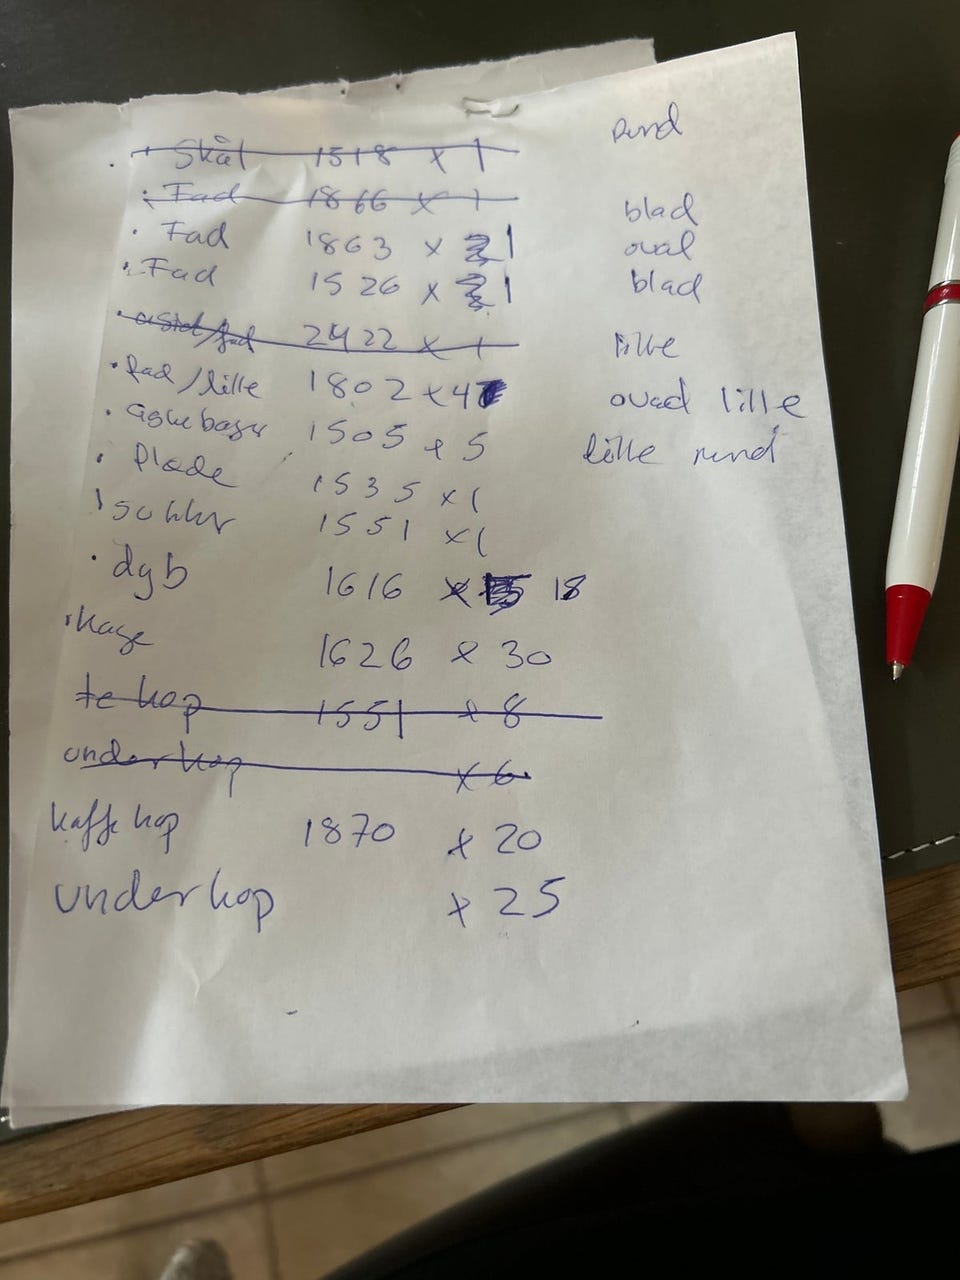 Skål 1518 x 1 rund
Fad 1866 x 1 blad
Fad 1863 x 1 oval
Fad 1526 x 1 blad
2422 x 1 lille
fad/lille 1802 x 4 lille
1505 x 5 lille rund
Plade 1535 x 1
1551 x 1
dyb 1616 x 18
kage 1626 x 30
te kop 1551 x 8
underkop x 6
kaffe kop 1870 x 20
underkop x 25